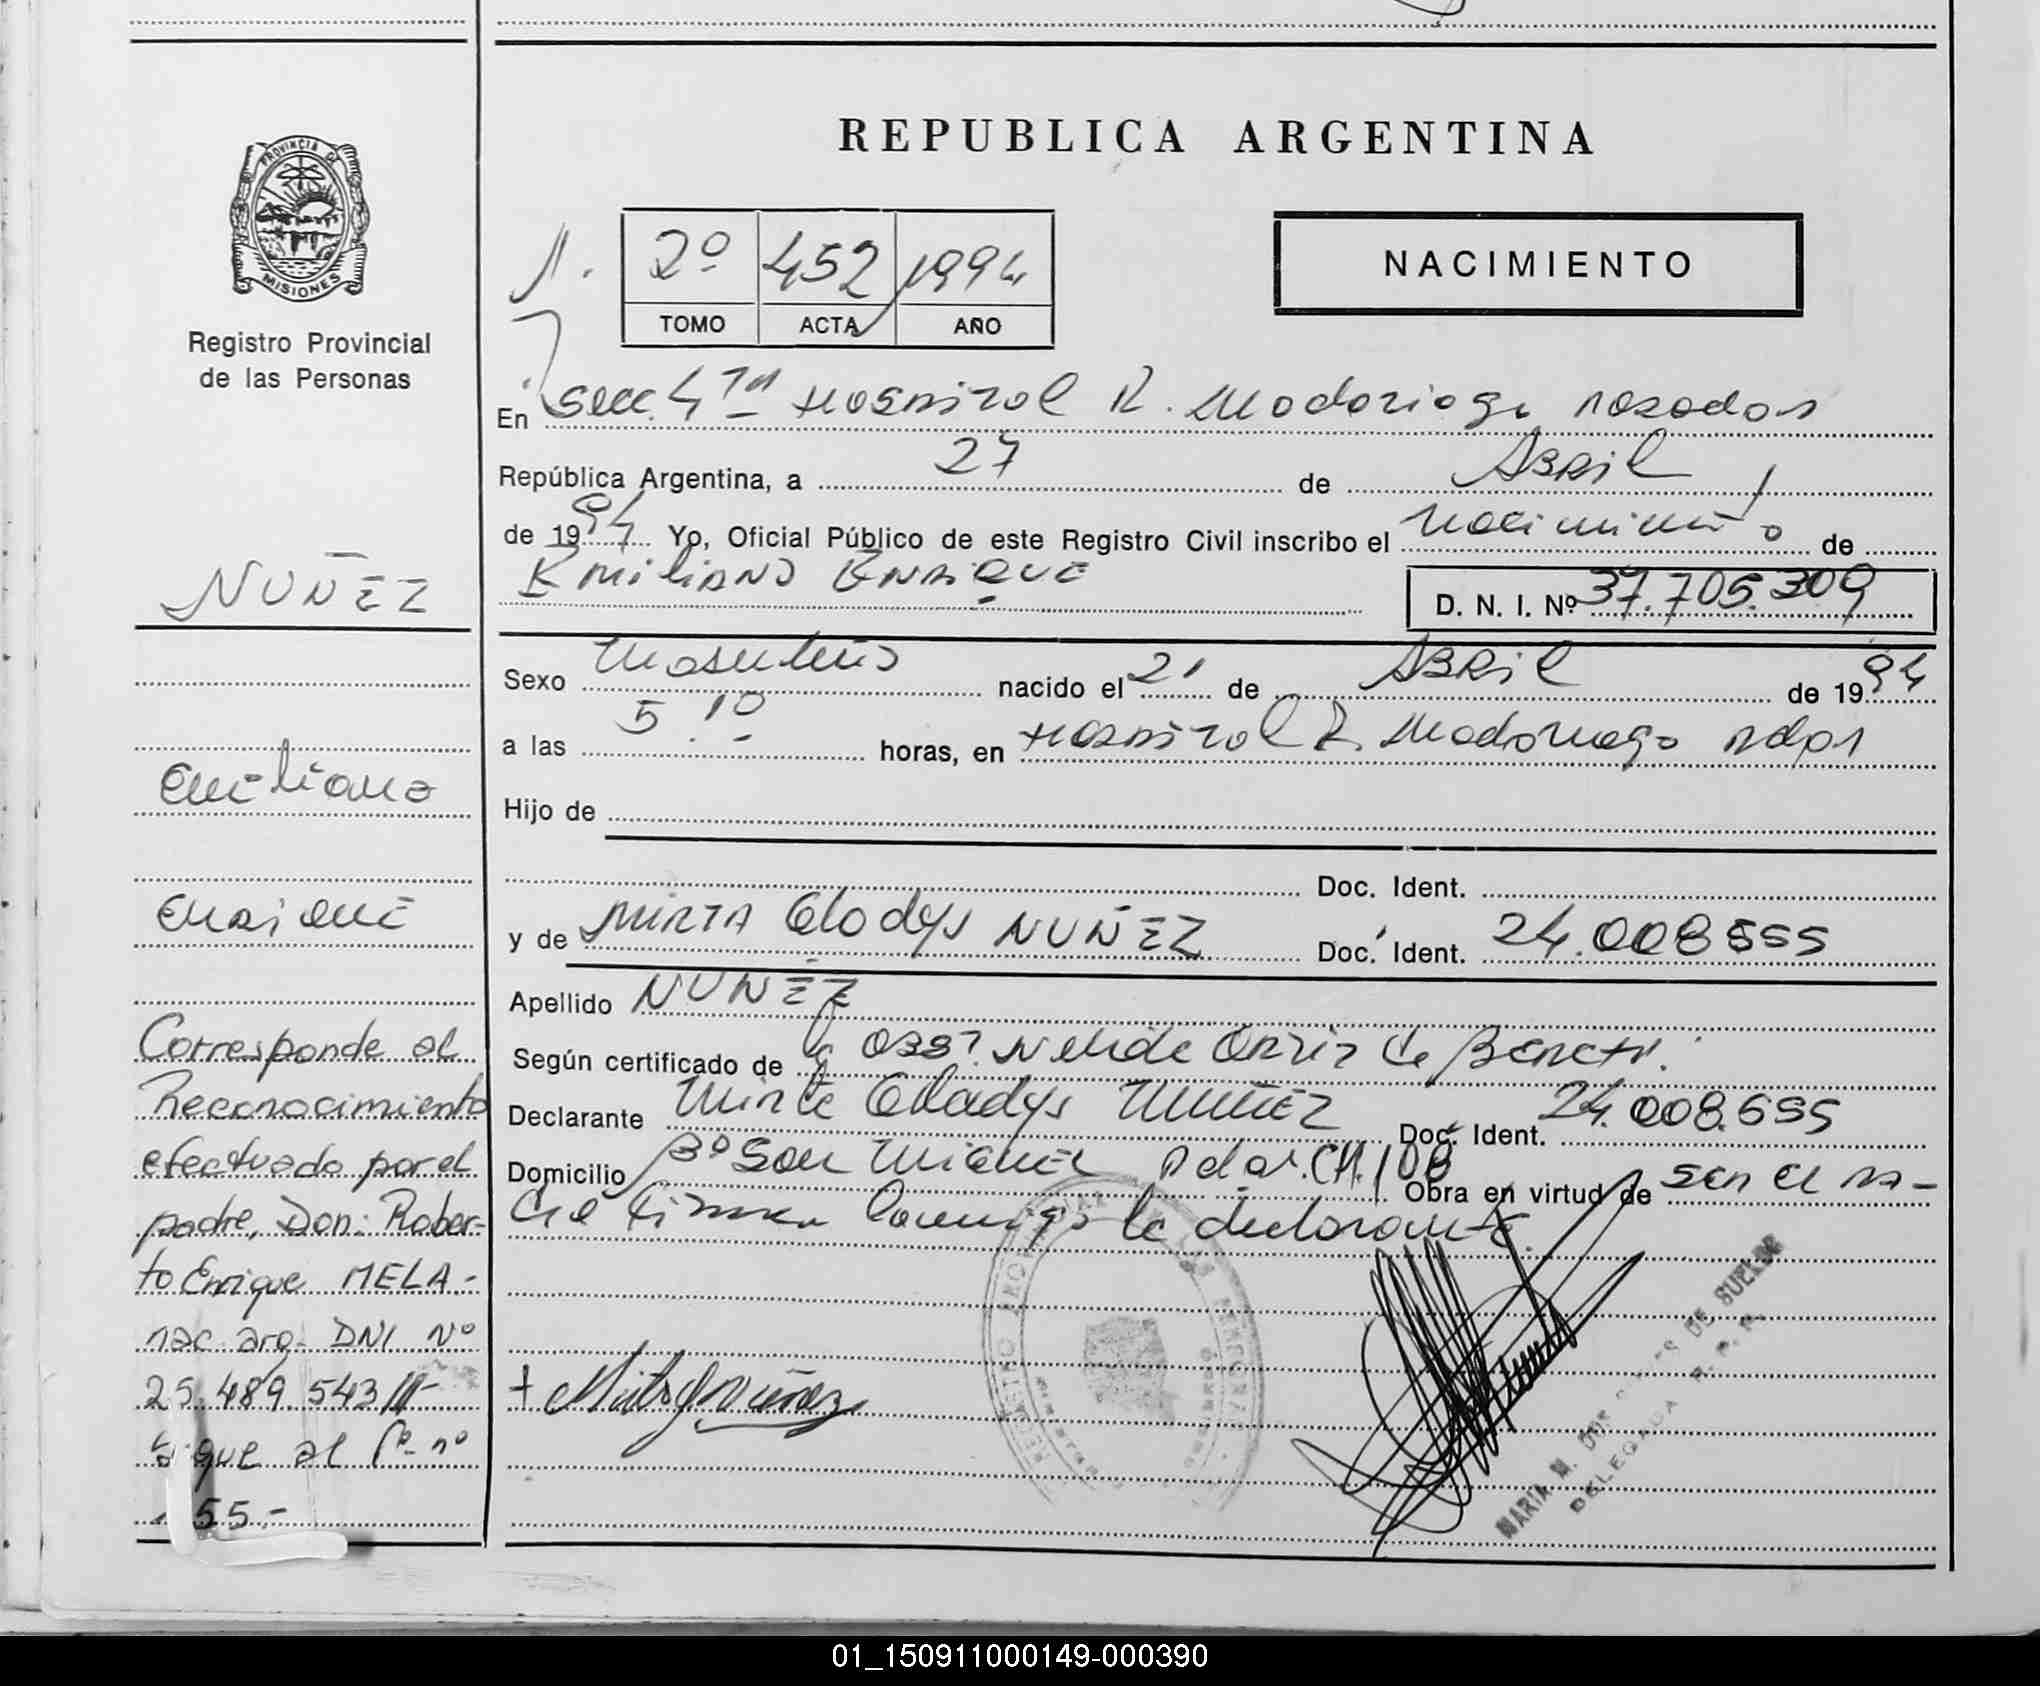 REPUBLICA ARGENTINA
PROVINCIA DE
MISIONES
Registro Provincial
de las Personas
2º 452 1994
TOMO ACTA AÑO
NACIMIENTO
En Secc. 4ta Hospital R. Madariaga Posadas
República Argentina, a 27 de Abril
de 1994 Yo, Oficial Público de este Registro Civil inscribo el Nacimiento de
Emiliano Enrique D. N. I. Nº 37.705.309
NUÑEZ
Sexo Masculino nacido el 21 de Abril de 1994
a las 5.10 horas, en Hospital R. Madariaga Pdas
Emiliano
Hijo de
Doc. Ident.
Enrique
y de MIRTA Gladys NUÑEZ Doc. Ident. 24.008.555
Apellido NUÑEZ
Según certificado de la Obst. Nelida Ortiz de
Declarante Mirta Gladys NUÑEZ Doc. Ident. 24.008.555
Domicilio Bº San Miguel Pdas. CH. 108 Obra en virtud de ser el
la declarante.
Corresponde al
Reconocimiento
efectuado por el
padre, Don: Rober-
to Enrique MELA-
nac. arg. DNI Nº
25.489.543
sigue al Fº nº
55.-
REGISTRO PROVINCIAL
MARIA M. DOS DE SUELDO
DELEGADA R. P. P.
01_150911000149-000390